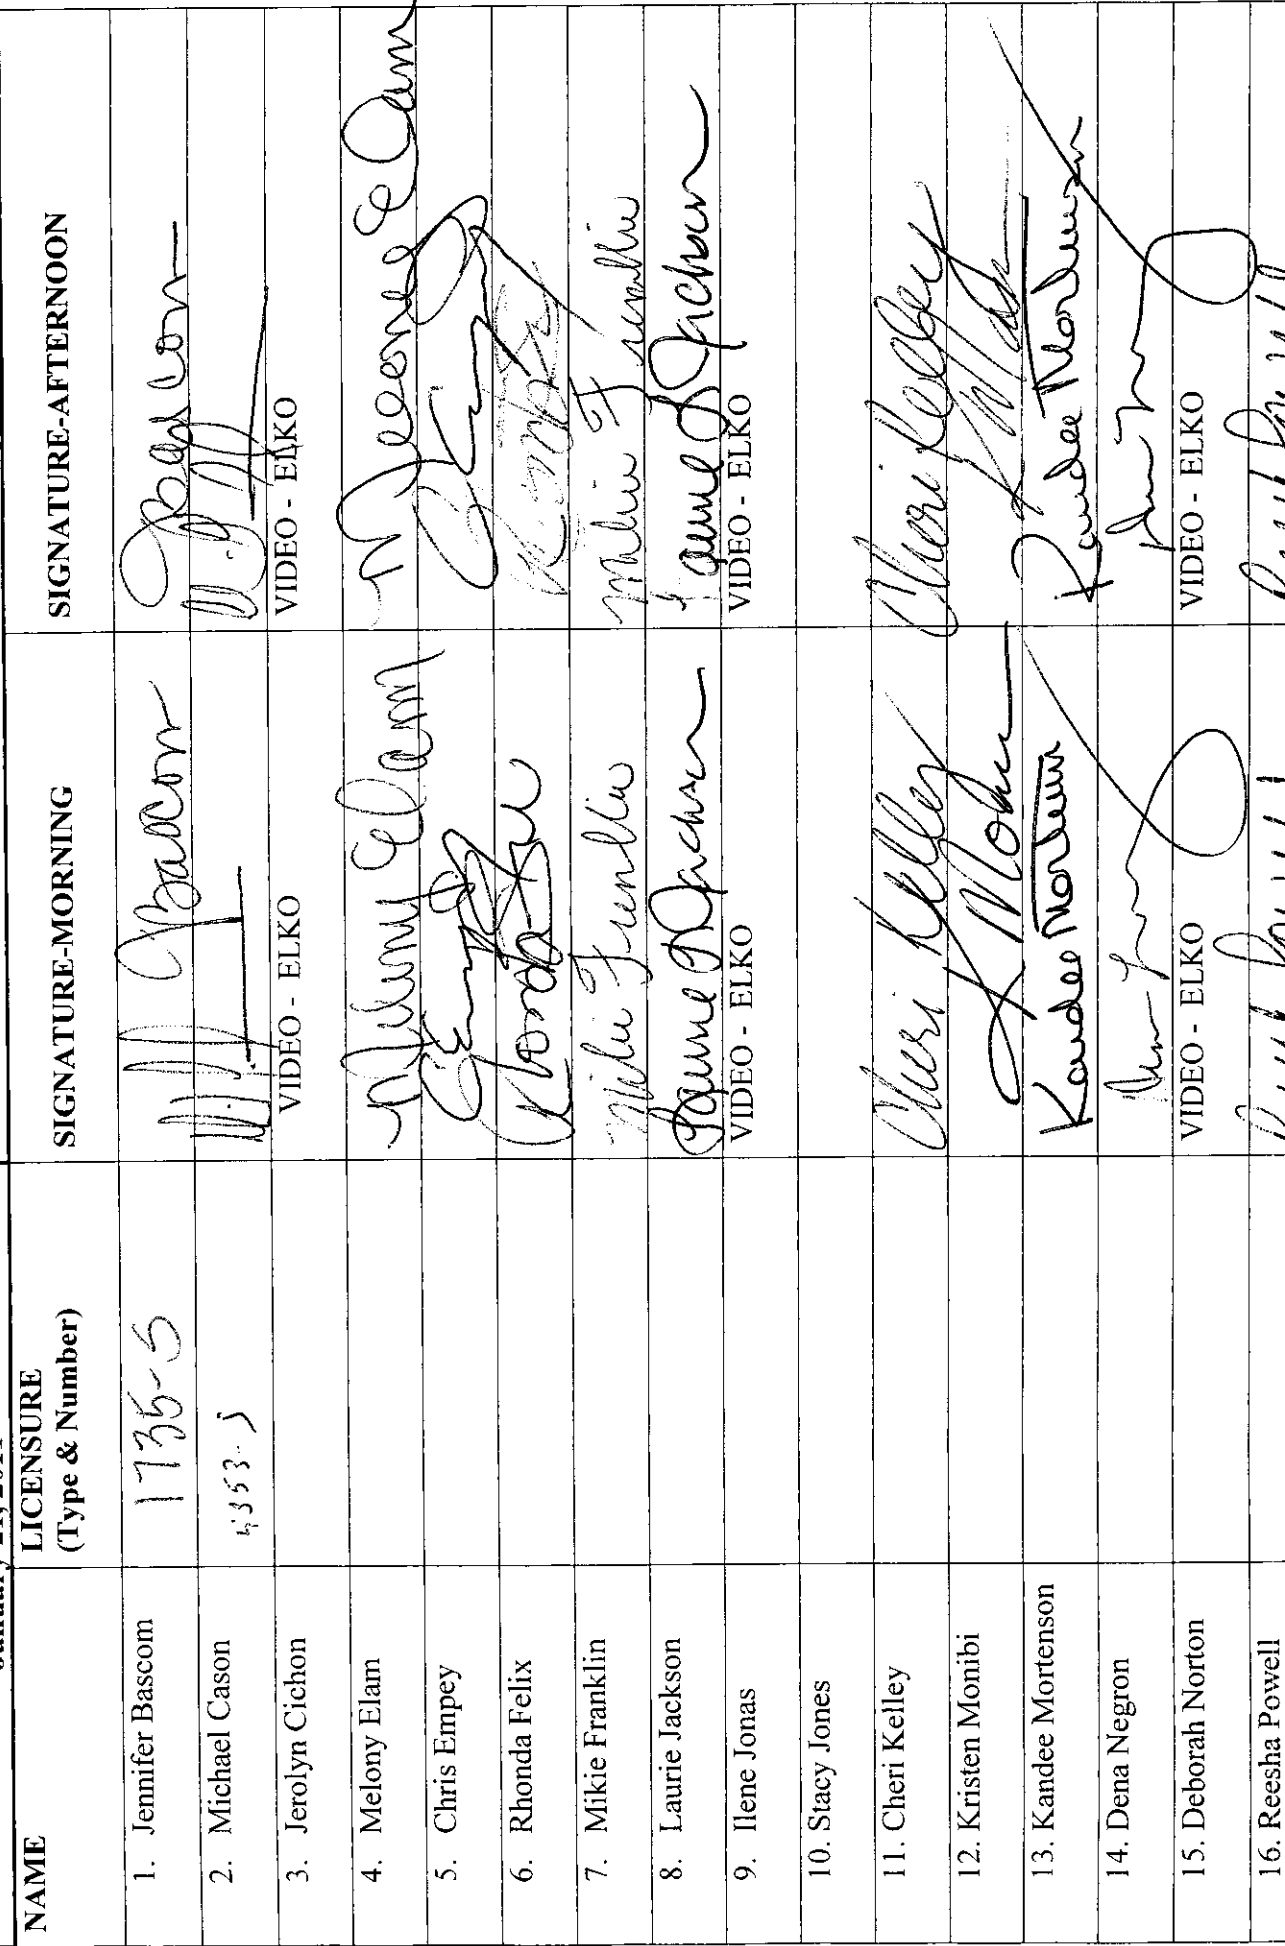 January 21, 2011
NAME LICENSURE (Type & Number) SIGNATURE-MORNING SIGNATURE-AFTERNOON
1. Jennifer Bascom 1735-S Bascom Bascom
2. Michael Cason
3. Jerolyn Cichon VIDEO - ELKO VIDEO - ELKO
4. Melony Elam Melony Elam Melony Elam
5. Chris Empey
6. Rhonda Felix
7. Mikie Franklin Mikie Franklin Mikie Franklin
8. Laurie Jackson Laurie Jackson Laurie Jackson
9. Ilene Jonas VIDEO - ELKO VIDEO - ELKO
10. Stacy Jones
11. Cheri Kelley Cheri Kelley Cheri Kelley
12. Kristen Monibi
13. Kandee Mortenson Kandee Mortenson Kandee Mortenson
14. Dena Negron
15. Deborah Norton VIDEO - ELKO VIDEO - ELKO
16. Reesha Powell